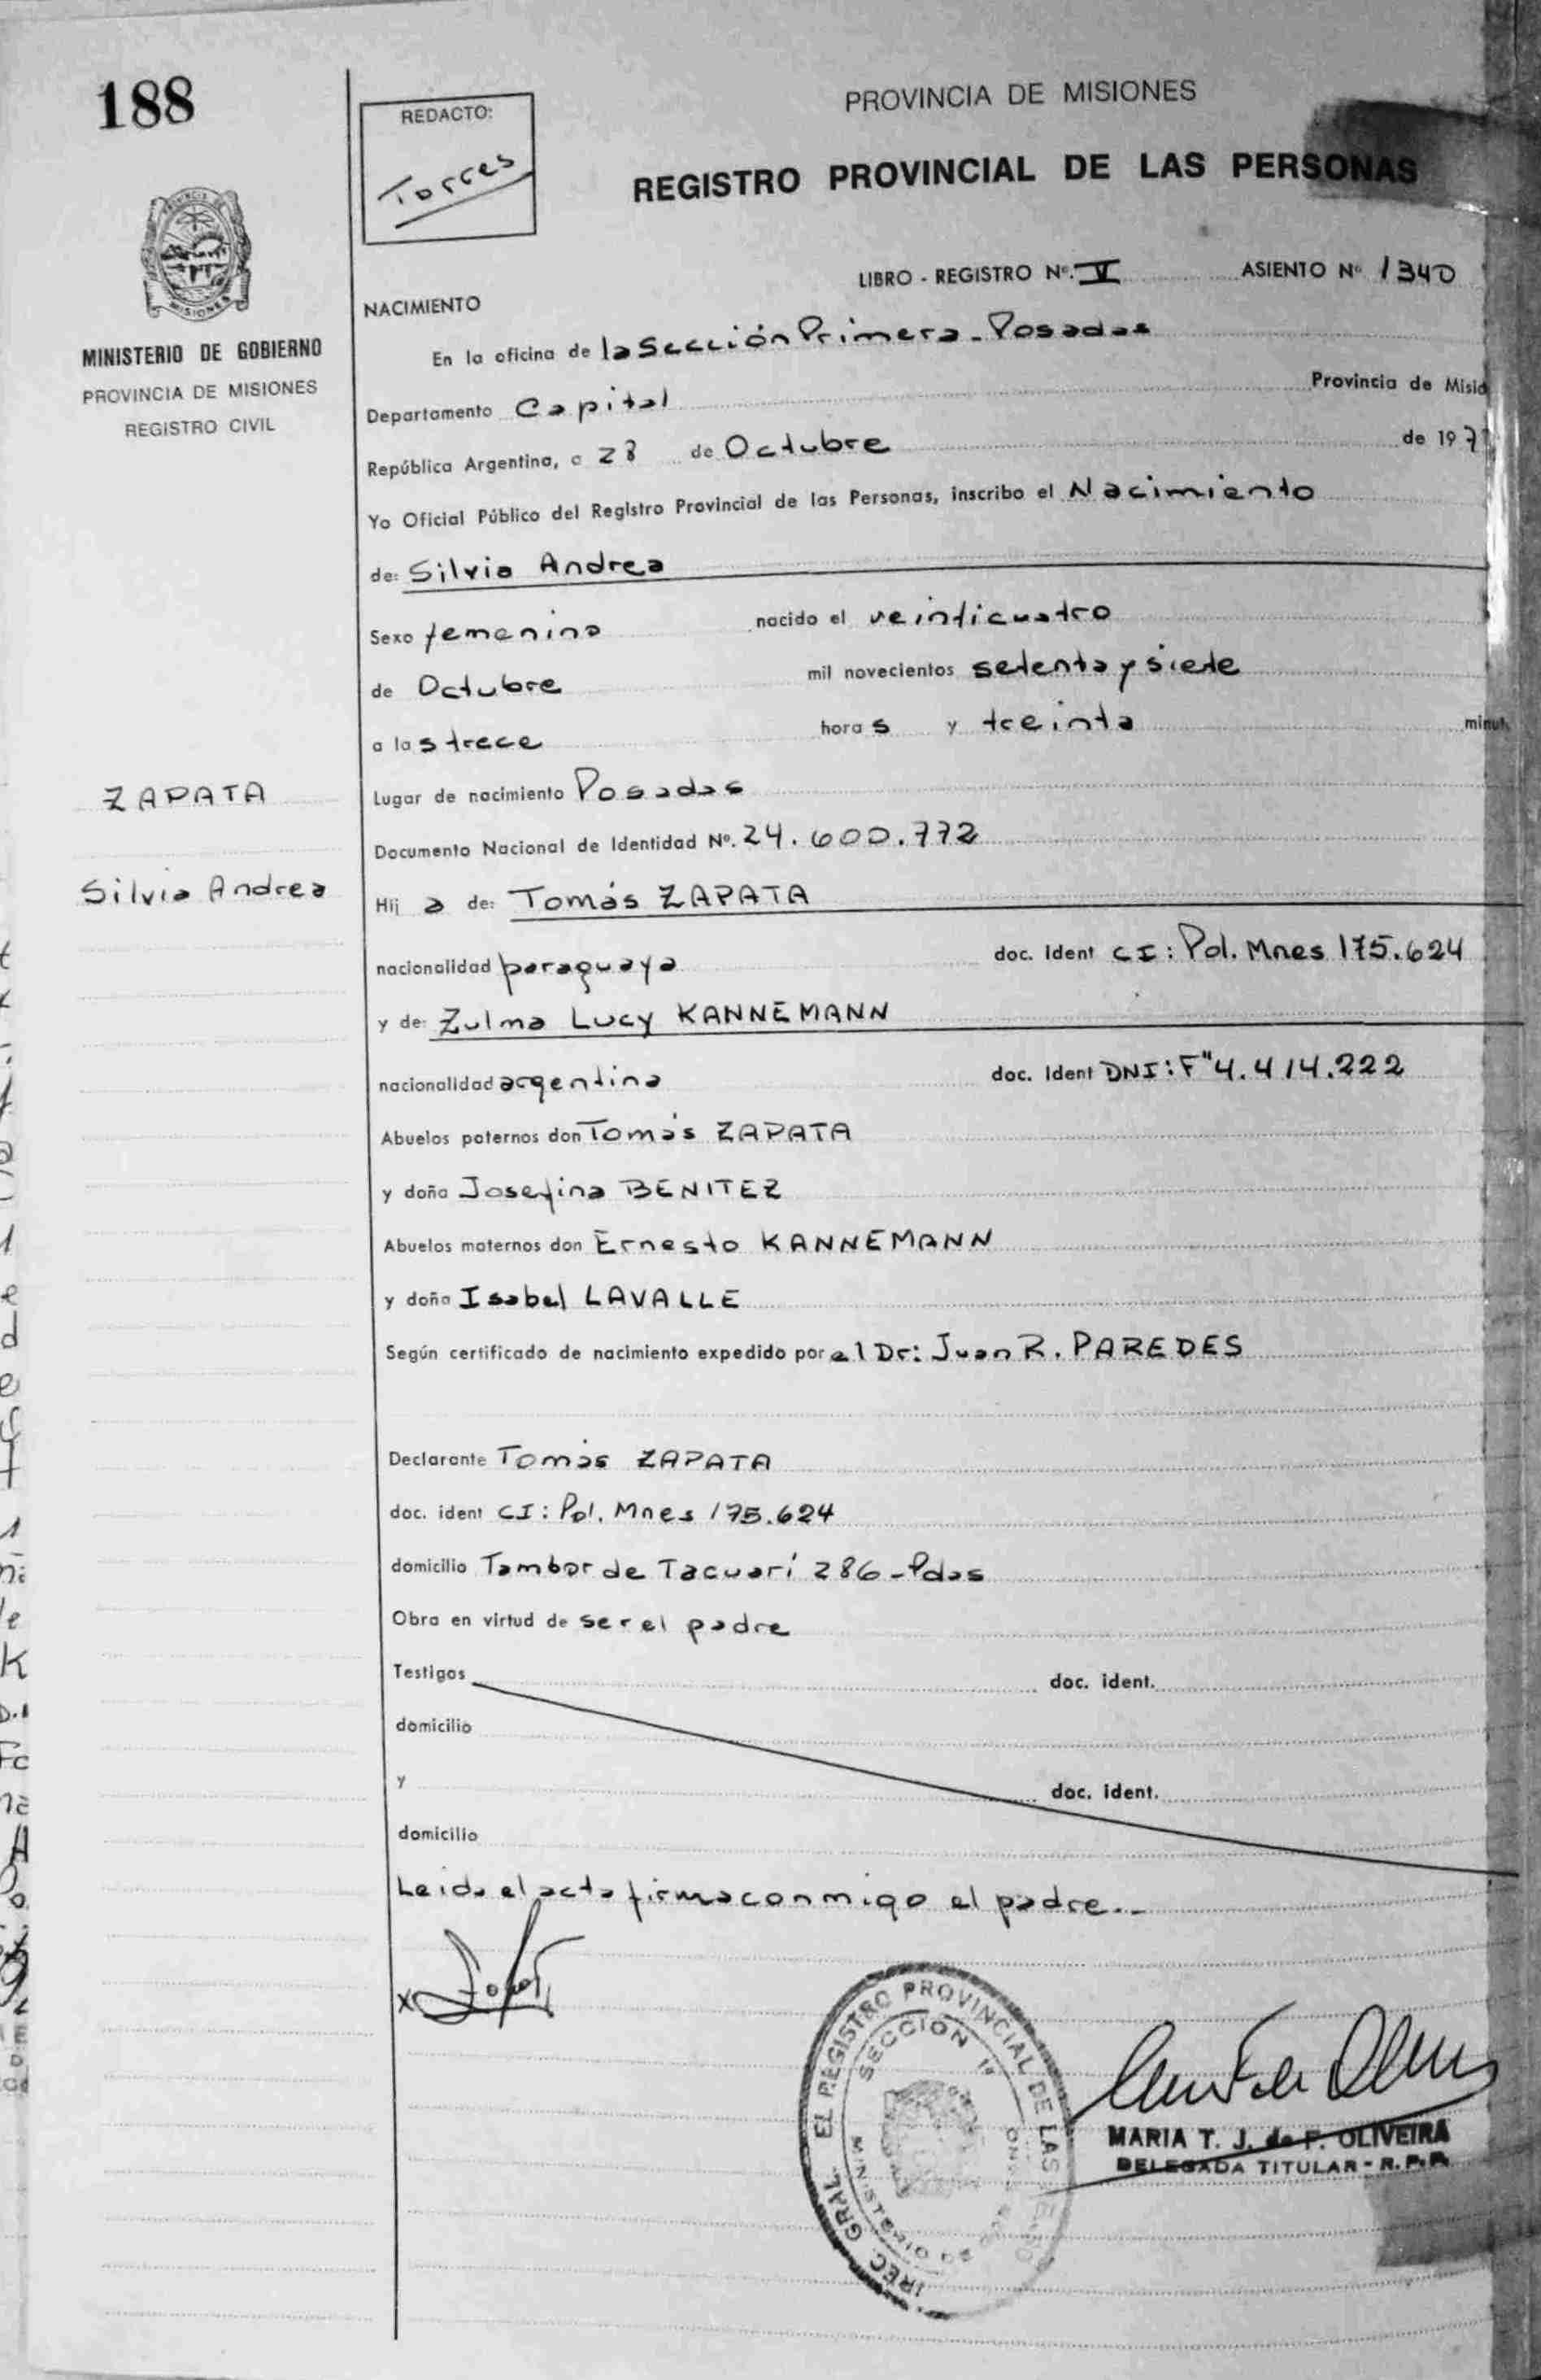 188
REDACTO:
Torres
PROVINCIA DE MISIONES
REGISTRO PROVINCIAL DE LAS PERSONAS
MINISTERIO DE GOBIERNO
PROVINCIA DE MISIONES
REGISTRO CIVIL
LIBRO - REGISTRO Nº. V ASIENTO Nº 1340
NACIMIENTO
En la oficina de la Sección Primera - Posadas
Departamento Capital Provincia de Misio
República Argentina, a 28 de Octubre de 197
Yo Oficial Público del Registro Provincial de las Personas, inscribo el Nacimiento
de: Silvia Andrea
Sexo femenino nacido el veinticuatro
de Octubre mil novecientos setenta y siete
a las trece horas y treinta minut
ZAPATA
Silvia Andrea
Lugar de nacimiento Posadas
Documento Nacional de Identidad Nº. 24.600.772
Hij a de: Tomás ZAPATA
nacionalidad paraguaya doc. Ident CI: Pol. Mnes 175.624
y de: Zulma Lucy KANNEMANN
nacionalidad argentina doc. Ident DNI: F" 4.414.222
Abuelos paternos don Tomás ZAPATA
y doña Josefina BENITEZ
Abuelos maternos don Ernesto KANNEMANN
y doña Isabel LAVALLE
Según certificado de nacimiento expedido por el Dr: Juan R. PAREDES
Declarante Tomás ZAPATA
doc. ident CI: Pol. Mnes 175.624
domicilio Tambor de Tacuarí 286 - Pdas
Obra en virtud de ser el padre
Testigos doc. ident.
domicilio
y doc. ident.
domicilio
Leida el acta firma conmigo el padre..-
IREC. GRAL. EL REGISTRO PROVINCIAL DE LAS
SECCION 1ª
MINISTERIO
MARIA T. J. de F. OLIVEIRA
DELEGADA TITULAR - R.P.P.